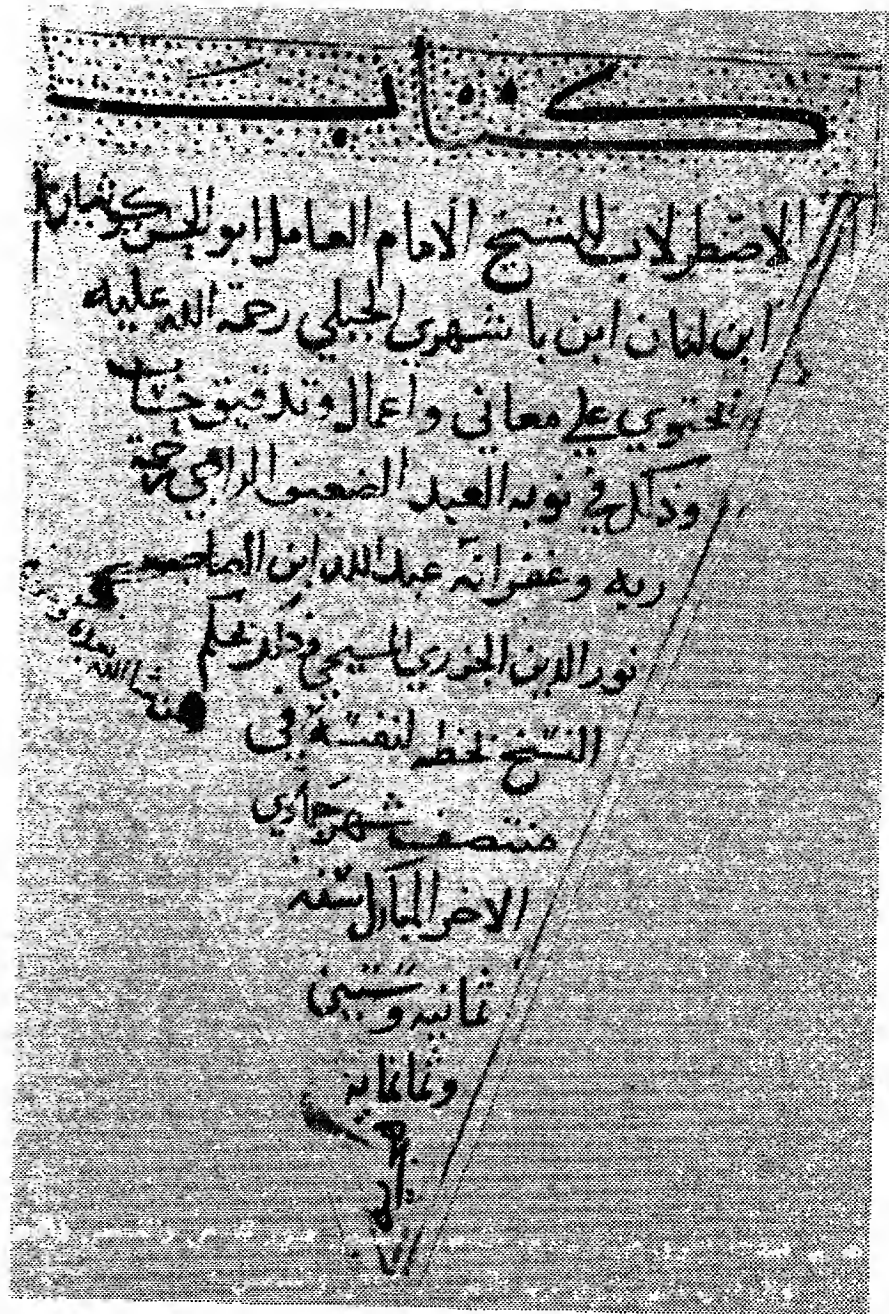 كتاب
الاصطرلاب للشيخ الامام العامل ابو الحسن كوشيار
ابن لبان ابن باشهري الجيلي رحمة الله عليه
يحتوي علي معاني واعمال وتدقيق حساب
وذلك في نوبه العبد الضعيف الراجي رحمة
ربه وغفرانه عبد الله ابن
نور الدين الجزري المسيحي وذلك بحكم
النسخ بخطه لنفسه في
منتصف شهر جمادي
الاخر المبارك سنه
ثمانيه وستين
وثمانمايه